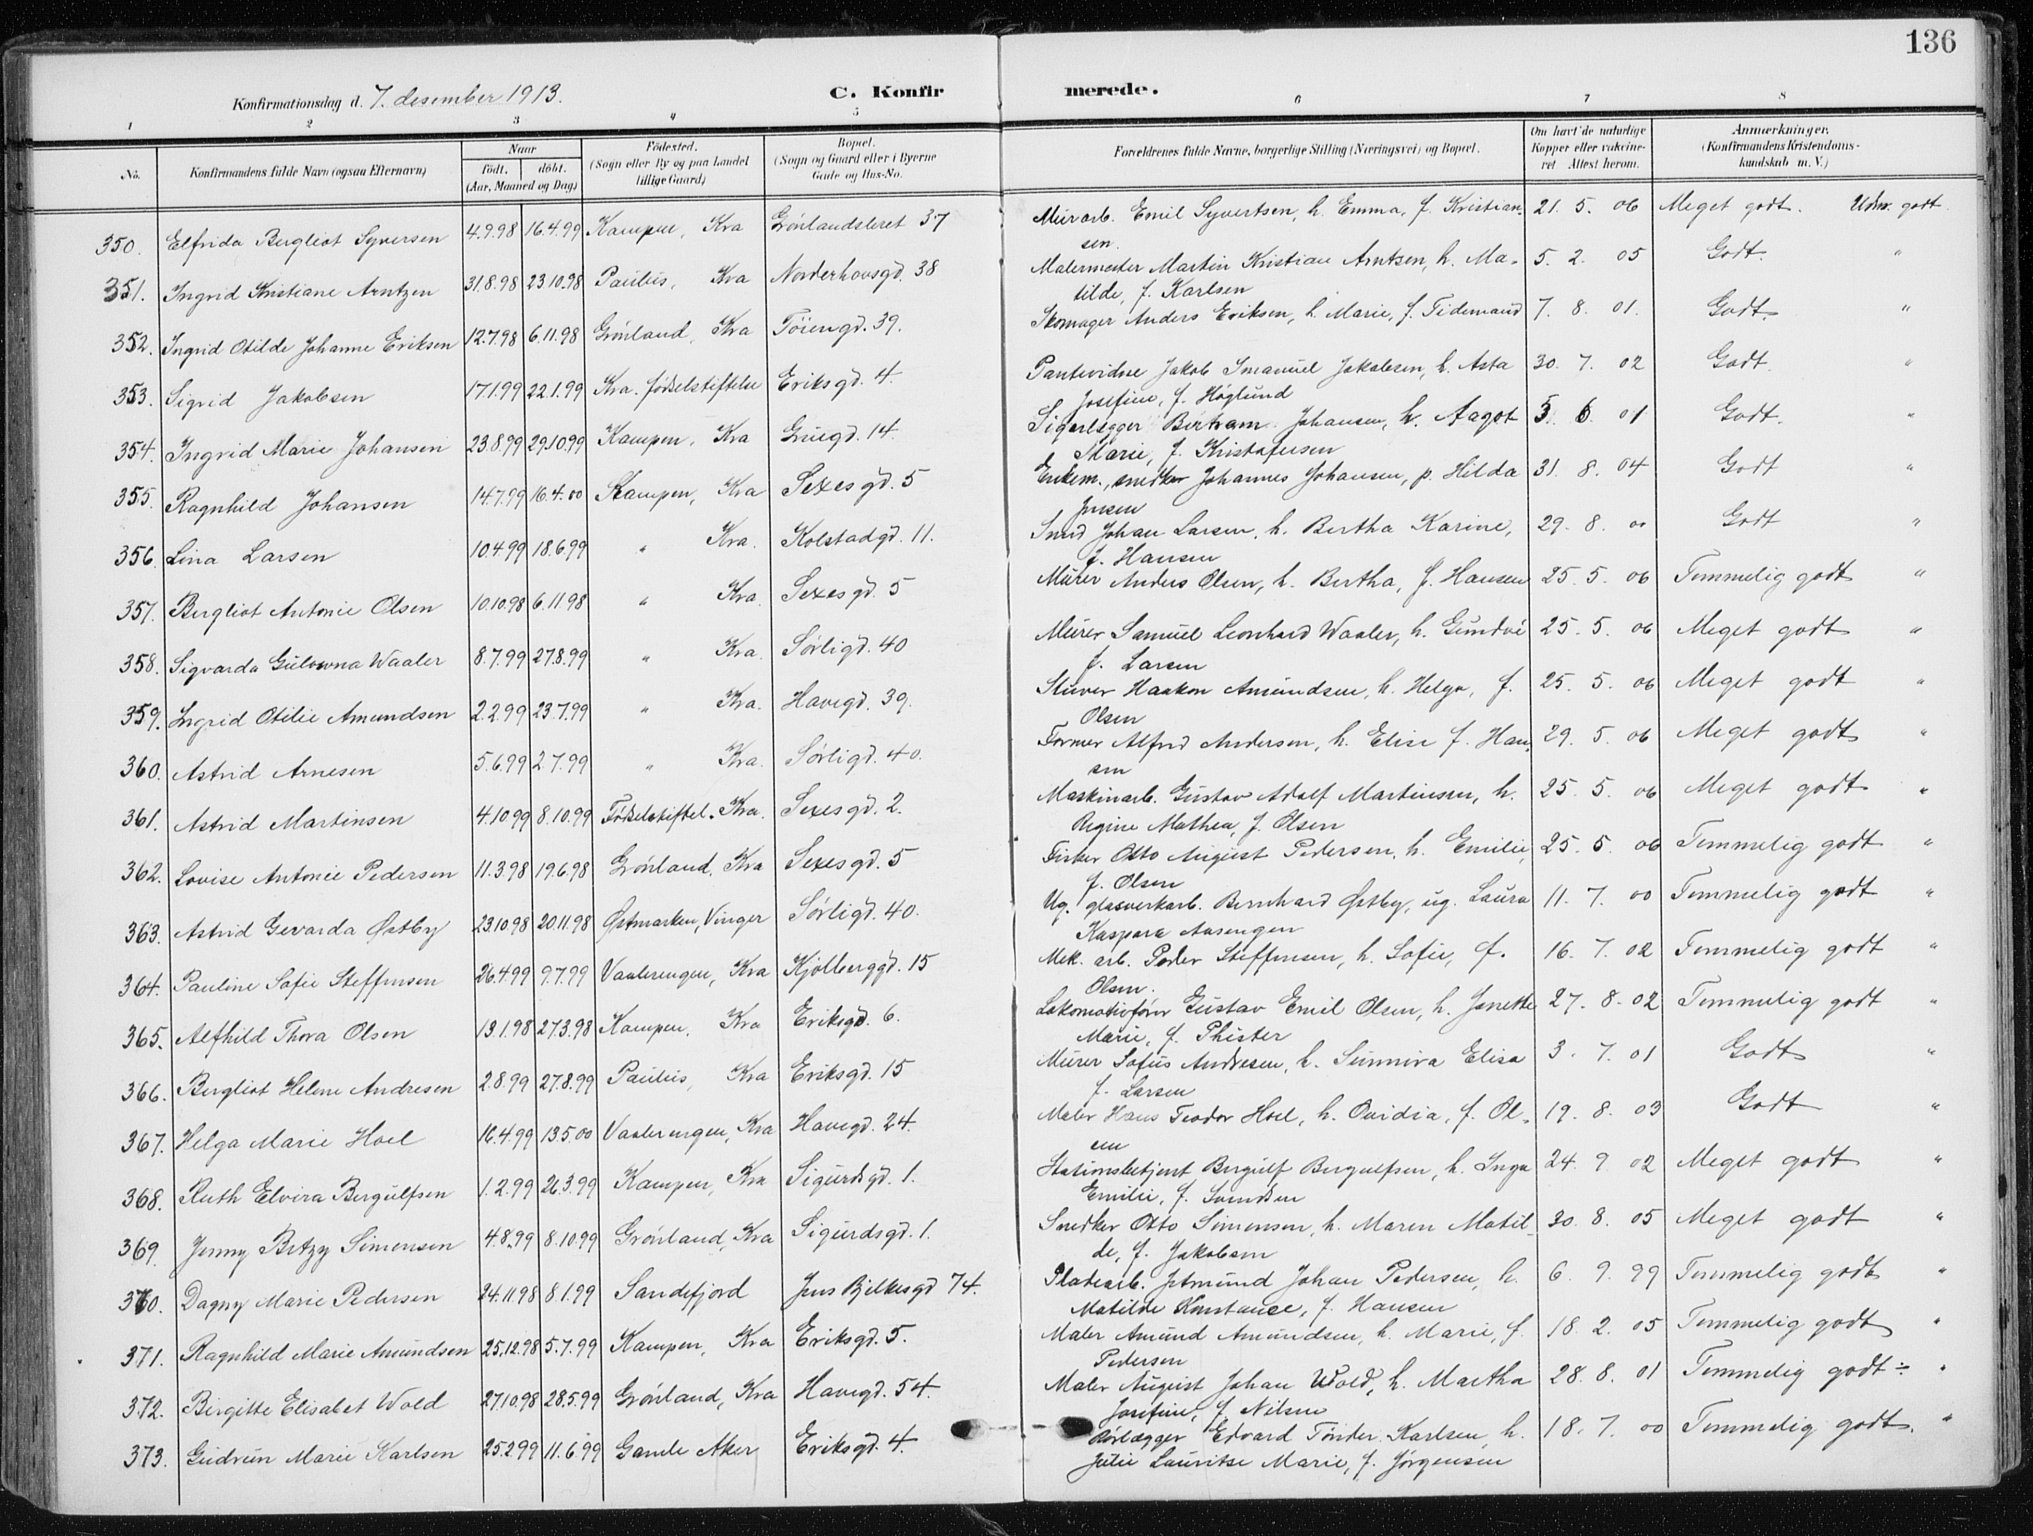 136
Konfirmationsdag d. 7. desember 1913.
C. Konfirmerede.
1 2 3 4 5 6 7 8
No. Konfirmandens fulde Navn (ogsaa Efternavn) Naar født. døbt. (Aar, Maaned og Dag) Fødested. (Sogn eller By og paa Landet tillige Gaard) Bopæl. (Sogn og Gaard eller i Byerne Gade og Hus-No. Forældrenes fulde Navne, borgerlige Stilling (Næringsvei) og Bopæl. Om havt de naturlige Kopper eller vakcineret Attest herom. Anmærkninger. (Konfirmandens Kristendomskundskab m. V.)
350. Elfrida Bergliot Syversen 4.9.98 16.4.99 Kampen, Kra Grønlandsleret 37 Murarb. Emil Syvertsen, h. Emma, f. Kristian- 21. 5. 06 Meget godt. Udm. godt
sen
351. Ingrid Kristiane Arntzen 31.8.98 23.10.98 Paulus, Kra Norderhovsgd. 38 Malermester Martin Kristian Arntsen, h. Ma- 5. 2. 05 Godt. "
tilde, f. Karlsen
352. Ingrid Otilde Johanne Eriksen 12.7.98 6.11.98 Grønland, Kra Tøiengd. 39. Skomager Anders Eriksen, h. Marie, f. Tidemand 7. 8. 01. Godt. "
353. Sigrid Jakobsen 17.1.99 22.1.99 Kra. fødselstiftelse Eriksgd. 4. Pantevidne Jakob Imanuel Jakobsen, h. Asta 30. 7. 02 Godt. "
Josefine, f. Høglund
354. Ingrid Marie Johansen 23.8.99 29.10.99 Kampen, Kra Gruegd. 14. Sigarlægger Bertram Johansen, h. Aagot 5. 6. 01 Godt. "
Marie, f. Kristofersen
355. Ragnhild Johansen 14.7.99 16.4.00 Kampen, Kra Sexesgd. 5 Enkem., snedker Johannes Johansen, p. Hilda 31. 8. 04 Godt "
Jensen
356. Lina Larsen 10.4.99 18.6.99 " Kra. Kolstadgd. 11. Smed Johan Larsen, h. Bertha Karine, 29. 8. 00 Godt "
f. Hansen
357. Bergliot Antonie Olsen 10.10.98 6.11.98 " Kra. Sexesgd. 5 Murer Anders Olsen, h. Bertha, f. Hansen 25. 5. 06 Temmelig godt "
358. Sigvarda Gulowna Waaler 8.7.99 27.8.99 " Kra. Sørligd. 40 Murer Samuel Leonhard Waaler, h. Gundvé 25. 5. 06 Meget godt "
f. Larsen
359. Ingrid Otilie Amundsen 2.2.99 23.7.99 " Kra. Havegd. 39. Stuver Haakon Amundsen, h. Helga, f. 25. 5. 06 Meget godt "
Olsen
360. Astrid Arnesen 5.6.99 2.7.99 " Kra. Sørligd. 40. Former Alfred Andersen, h. Elise f. Han- 29. 5. 06 Meget godt "
sen
361. Astrid Martinsen 4.10.99 8.10.99 Fødselstiftel. Kra. Sexesgd. 2. Maskinarb. Gustav Adolf Martinsen, h. 25. 5. 06 Meget godt "
Regine Mathea, f. Olsen
362. Lovise Antonie Pedersen 11.3.98 19.6.98 Grønland, Kra Sexesgd. 5 Fisker Otto August Pedersen, h. Emilie, 25. 5. 06 Temmelig godt "
f. Olsen
363. Astrid Gevarda Østby 23.10.98 20.11.98 Østmarken, Vinger Sørligd. 40. Ug. glasverkarb. Bernhard Østby, ug. Laura 11. 7. 00 Temmelig godt "
Kaspara Aasengen
364. Pauline Sofie Steffensen 26.4.99 9.7.99 Vaalerengen, Kra Kjølberggd. 15 Mek. arb. Peder Steffensen, h. Sofie, f. 16. 7. 02 Temmelig godt "
Olsen.
365. Alfhild Thora Olsen 13.1.98 27.3.98 Kampen, Kra Eriksgd. 6. Lokomotivfører Gustav Emil Olsen, h. Janette 27. 8. 02 Temmelig godt "
Marie, f. Phister
366. Bergliot Helene Andresen 2.8.99 27.8.99 Paulus, Kra Eriksgd. 15 Murer Sofus Andresen, h. Sunniva Elisa 3. 7. 01 Godt "
f. Larsen
367. Helga Marie Hoel 16.4.99 13.5.00 Vaalerengen, Kra Havegd. 24. Maler Hans Teodor Hoel, h. Ovidia, f. Ol- 19. 8. 03 Godt "
sen
368. Ruth Elvira Bergulfsen 1.2.99 26.3.99 Kampen, Kra Sigurdsgd. 1. Stationsbetjent Bergulf Bergulfsen, h. Inga 24. 9. 02 Meget godt "
Emilie, f. Svendsen
369. Jenny Betzy Simensen 4.8.99 8.10.99 Grønland, Kra Sigurdsgd. 1. Snedker Otto Simensen, h. Maren Matil- 30. 8. 05 Meget godt "
de, f. Jakobsen
370. Dagny Marie Pedersen 24.11.98 8.1.99 Sandefjord Jens Bjelkesgd 74. Pladearb. Jetmund Johan Pedersen, h. 6. 9. 99 Temmelig godt "
Matilde Konstance, f. Hansen
371. Ragnhild Marie Amundsen 25.12.98 5.7.99 Kampen, Kra Eriksgd. 5. Maler Amund Amundsen, h. Marie, f. 18. 2. 05 Temmelig godt "
Pedersen
372. Birgitte Elisabet Wold 27.10.98 28.5.99 Grønland, Kra Havegd. 54. Maler August Johan Wold, h. Martha 28. 8. 01 Temmelig godt ÷ "
Josefine, f. Nilsen
373. Gudrun Marie Karlsen 25.2.99 11.6.99 Gamle Aker Eriksgd. 4. Rørlægger Edvard Tønder Karlsen, h. 18. 7. 00 Temmelig godt. "
Julie Lauritse Marie, f. Jørgensen